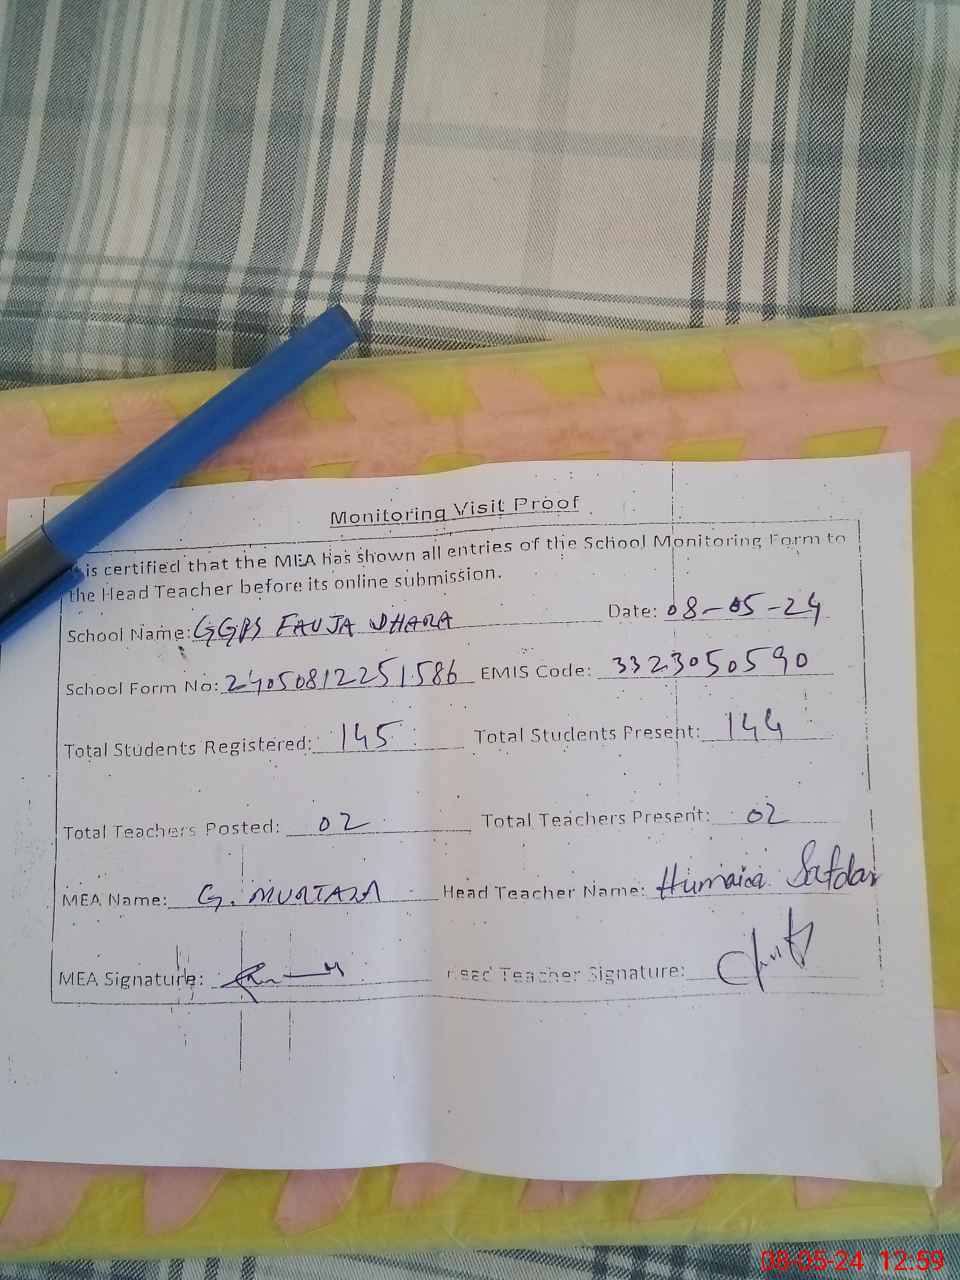 Monitoring Visit Proof
is certified that the MEA has shown all entries of the School Monitoring Form to
the Head Teacher before its online submission.
School Name: GGPS FAUJA DHARA Date: 08-05-24
School Form No: 24050812251586 EMIS Code: 3323050590
Total Students Registered: 145 Total Students Present: 144
Total Teachers Posted: 02 Total Teachers Present: 02
MEA Name: G. MURTAZA Head Teacher Name: Humaira Safdar
MEA Signature: Head Teacher Signature:
08-05-24 12:59